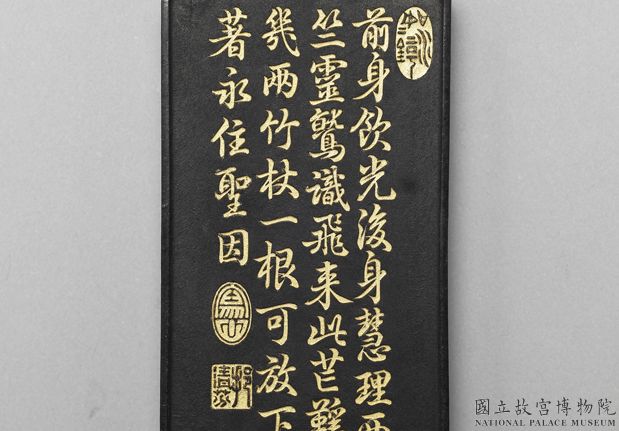 前身飲光後身慧理西
竺靈鷲識飛来此芒鞵
幾两竹杖一根可放下
著永住聖因
國立故宮博物院
NATIONAL PALACE MUSEUM